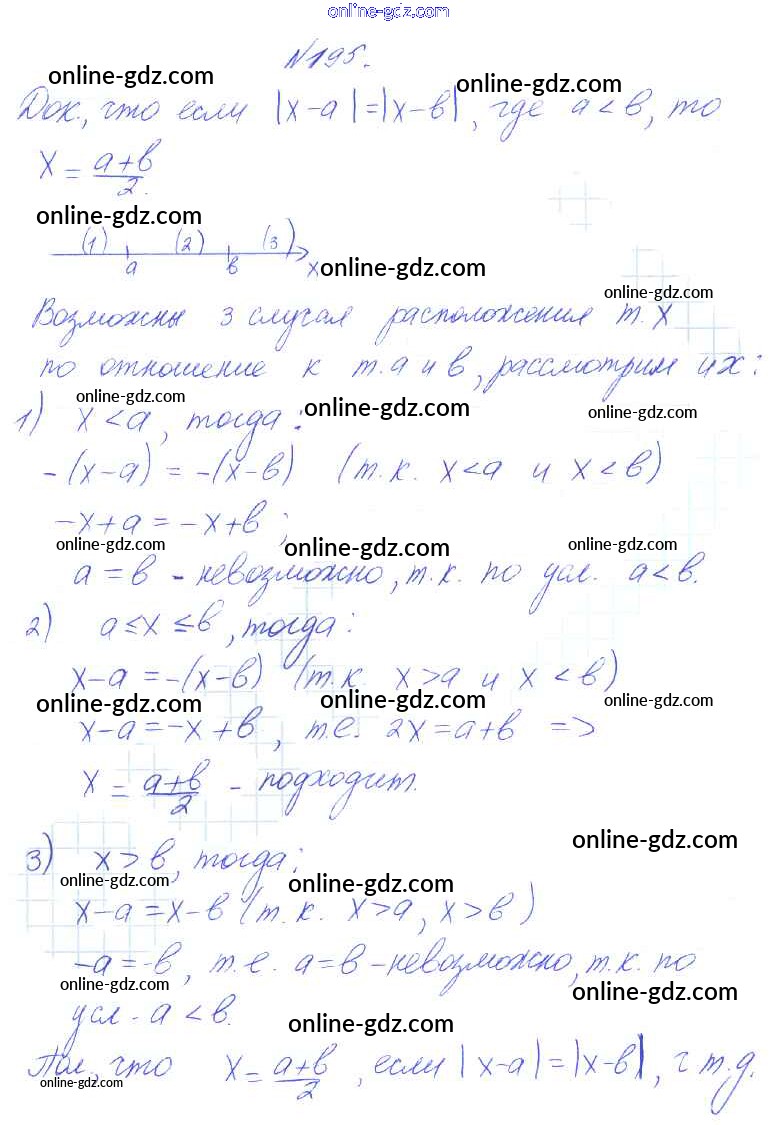 online-gdz.com
№195.
online-gdz.com
online-gdz.com
Док., что если |x-a|=|x-b|, где a<b, то
x = (a+b)/2.
online-gdz.com
(1) (2) (3)
a b x
online-gdz.com
online-gdz.com
Возможны 3 случая расположения т. x
по отношение к т. a и b, рассмотрим их:
online-gdz.com
online-gdz.com
online-gdz.com
1) x<a, тогда:
-(x-a) = -(x-b) (т.к. x<a и x<b)
-x+a = -x+b;
online-gdz.com
online-gdz.com
online-gdz.com
a=b - невозможно, т.к. по усл. a<b.
2) a≤x≤b, тогда:
x-a = -(x-b) (т.к. x>a и x<b)
online-gdz.com
online-gdz.com
online-gdz.com
x-a=-x+b, т.е. 2x=a+b =>
x = (a+b)/2 - подходит.
online-gdz.com
3) x>b, тогда:
online-gdz.com
online-gdz.com
x-a=x-b (т.к. x>a, x>b)
-a=-b, т.е. a=b - невозможно, т.к. по
online-gdz.com
online-gdz.com
усл. a<b.
online-gdz.com
Пол., что x = (a+b)/2, если |x-a|=|x-b|, ч.т.д.
online-gdz.com